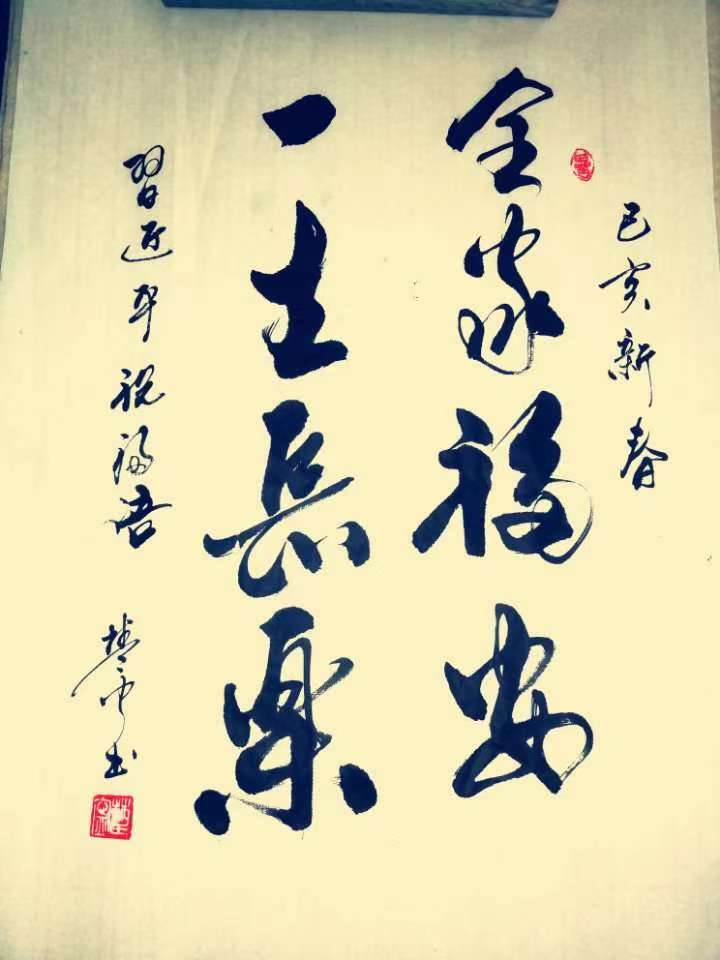 己亥新春
全家福安
一生長樂
習近平祝福语
书